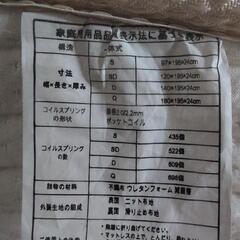 家庭用品品質表示法に基づく表示
構造 一体式
寸法
幅×長さ×厚み
S 97×195×24cm
SD 120×195×24cm
D 140×195×24cm
Q 160×195×24cm
コイルスプリング
の形状
線径2.0/2.2mm
ポケットコイル
コイルスプリング
の数
S 435個
SD 522個
D 609個
Q 696個
詰物の材料 不織布 ウレタンフォーム
外装生地の組成
表面 ニット布地
裏面 滑り止め布地
使用上の注意
・角面に折り曲げたり
・マットレスの上で、とんだり